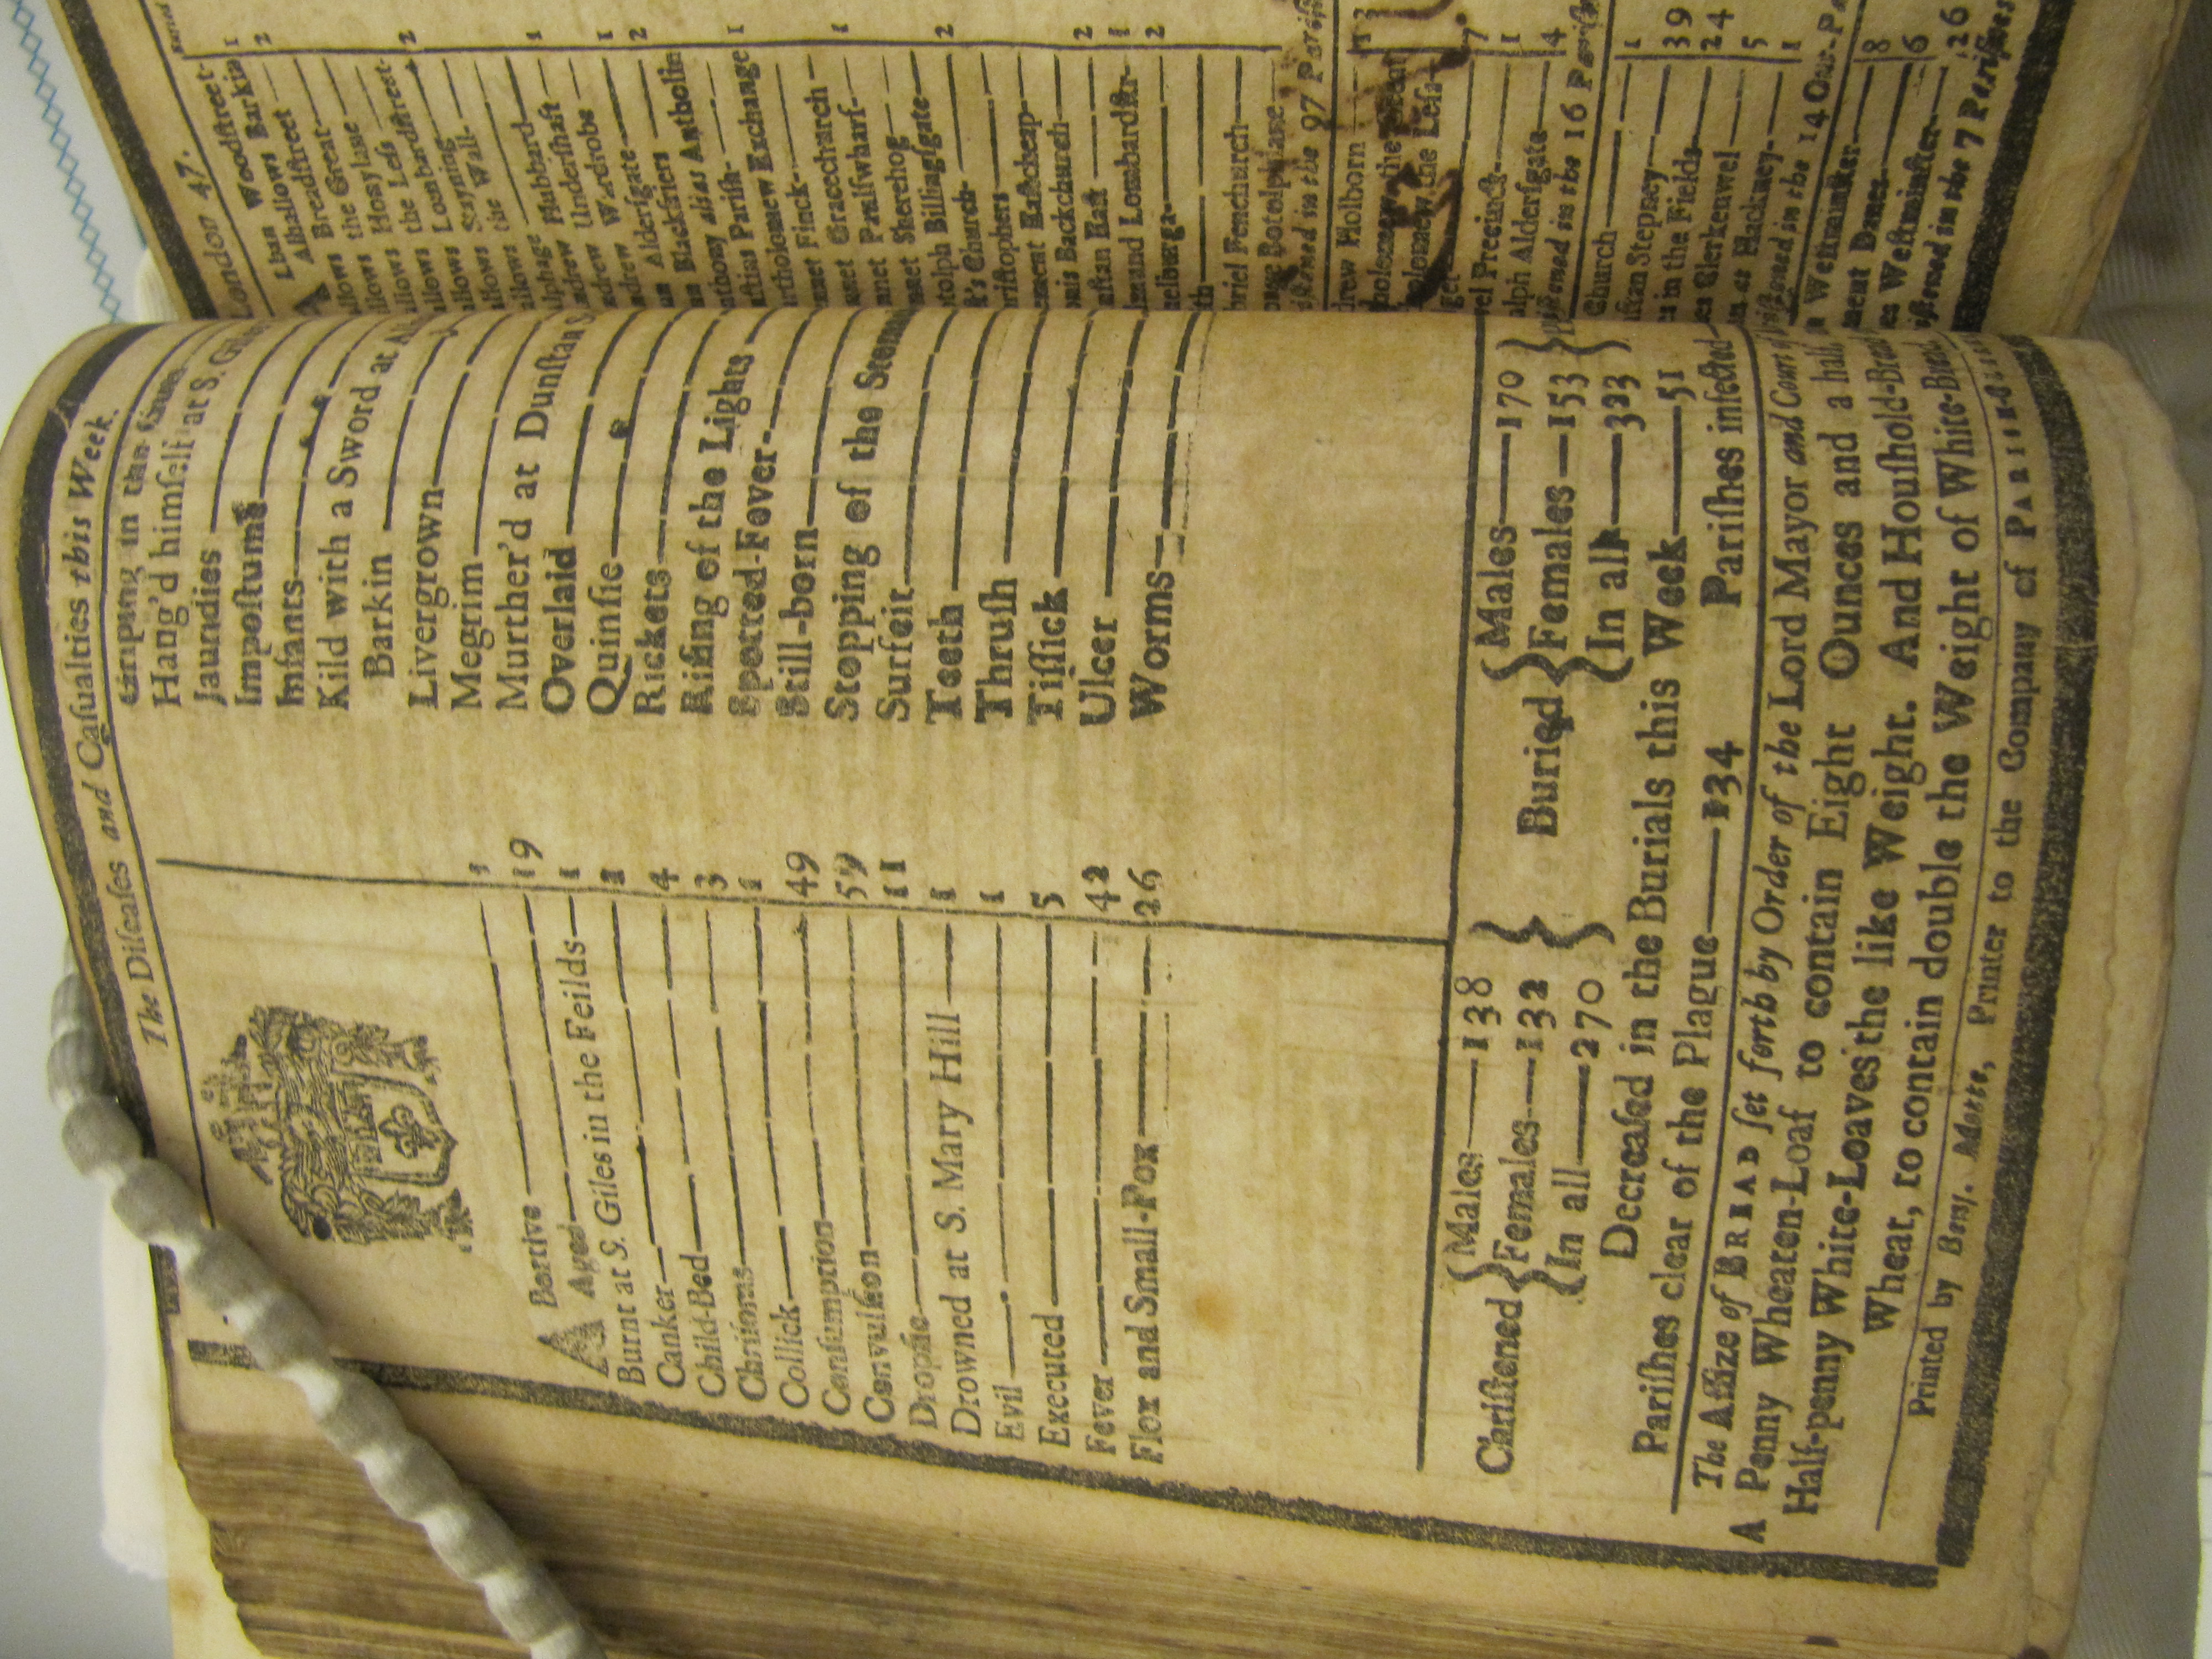 The Diseaſes and Caſualties this Week.
ABortive 1
Aged 19
Burnt at S. Giles in the Feilds 1
Canker 1
Child-Bed 4
Chriſoms 3
Collick 1
Conſumption 49
Convulſion 59
Dropſie 11
Drowned at S. Mary Hill 1
Evil 1
Executed 5
Fever 42
Flox and Small-Pox 26
Griping in the Guts
Hang'd himſelf at S. Giles
Jaundies
Impoſtume
Infants
Kild with a Sword at
Barkin
Livergrown
Megrim
Murther'd at Dunſtan
Overlaid
Quinſie
Rickets
Riſing of the Lights
Spotted-Fever
Still-born
Stopping of the Stom
Surfeit
Teeth
Thruſh
Tiſſick
Ulcer
Worms
Chriſtened { Males—138
Females—132
In all—270 }
Buried { Males—170
Females—153
In all—323 }
Decreaſed in the Burials this Week—51
Pariſhes clear of the Plague—134 Pariſhes infected
The Aſſize of BREAD ſet forth by Order of the Lord Mayor and Court of
A Penny Wheaten-Loaf to contain Eight Ounces and a half
Half-penny White-Loaves the like Weight. And Houſhold-Bread
Wheat, to contain double the Weight of White-Bread.
Printed by Benj. Motte, Printer to the Company of PARISH-
London 47.
Buried
Lban Woodſtreet
Alhallows Barkin 1
Breadſtreet 2
llows the Great
llows Honylane
llows the Leſs
allows Lombardſtreet 2
allows Stayning
allows the Wall
lphage
Hubbard 1
ndrew Underſhaft
ndrew Wardrobe 1
Alderſgate 2
Blackfriers
nthony alias Antholin
uſtins Pariſh
artholomew Exchange 1
nnet Finck
nnet Gracechurch
nnet Paulſwharf 1
nnet Sherehog
otolph Billingſgate 2
Church
riſtophers
ment Eaſtcheap
nis Backchurch 2
nſtan Eaſt 1
mund Lombardſtr 2
thelburga
briel Fenchurch
orge Botolplane
in the 97 Pariſh
drew Holborn
tholomew the Great
tholomew the Leſs
wel Precinct 7
olph Alderſgate 1
in the 16 Pariſh 4
Church
nſtan Stepney 1
in the Fields 39
es Clerkenwel 24
n at Hackney 5
in the 14 Out-Pa
Weſtminſter
ment Danes 8
es Weſtminſter 6
in the 7 Pariſhes 26